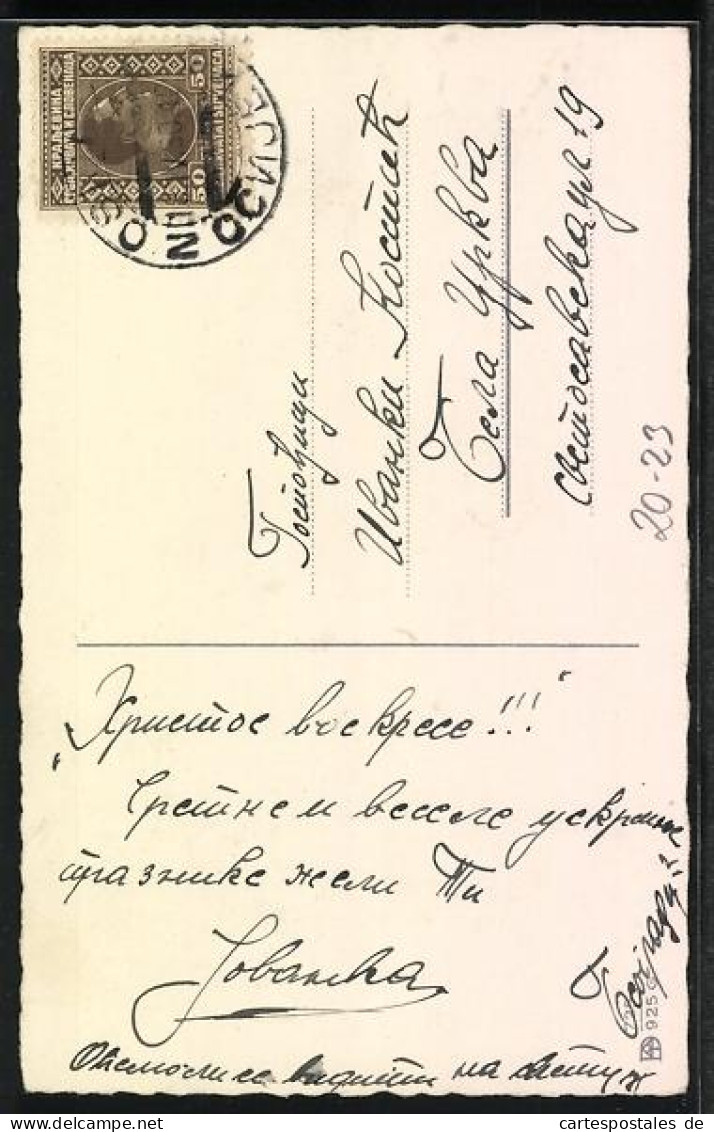 КРАЉЕВИНА
СРБА, ХРВАТА И СЛОВЕНАЦА
50 50
Госпођици
Иванки Костић
Бела Црква
Светосавска ул 19
20-23
„Христос воскресе!!!“
Сретне и веселе ускршње
празнике жели Ти
Јованка
Београд
925
на
cartespostales de